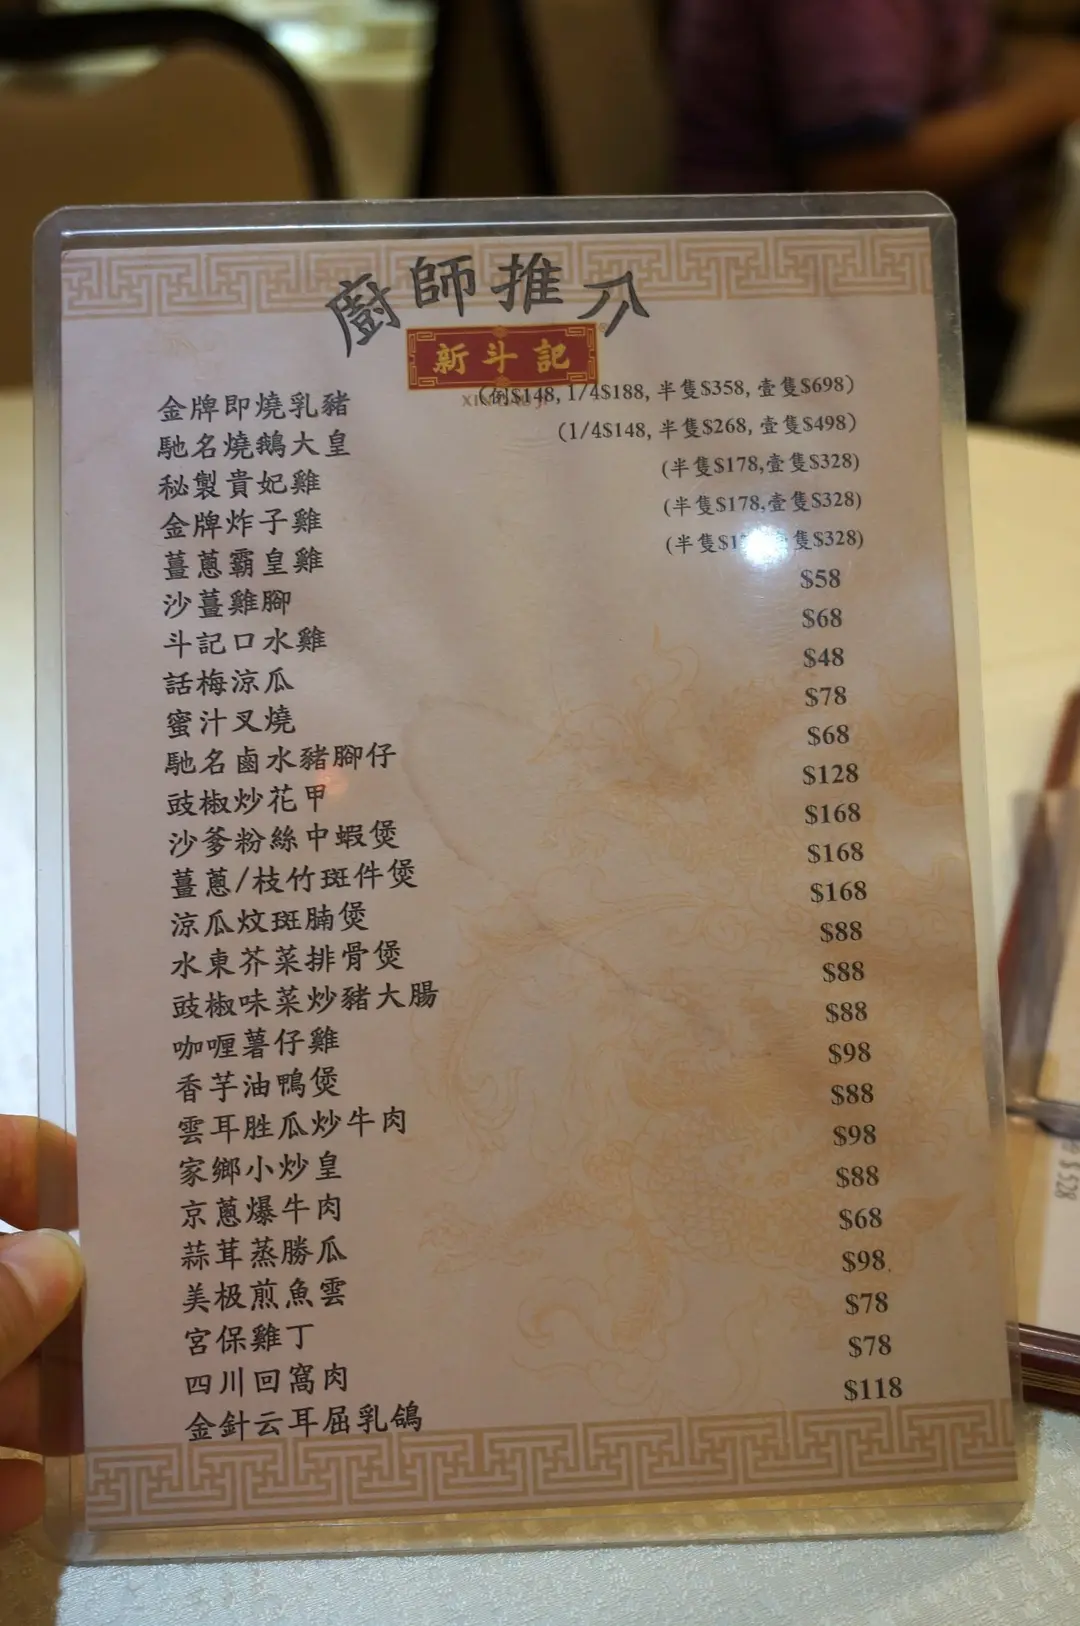 廚師推介
新斗記
金牌即燒乳豬 (例$148, 1/4$188, 半隻$358, 壹隻$698)
馳名燒鵝大皇 (1/4$148, 半隻$268, 壹隻$498)
秘製貴妃雞 (半隻$178,壹隻$328)
金牌炸子雞 (半隻$178,壹隻$328)
薑蔥霸皇雞 (半隻 隻$328)
沙薑雞腳 $58
斗記口水雞 $68
話梅涼瓜 $48
蜜汁叉燒 $78
馳名鹵水豬腳仔 $68
豉椒炒花甲 $128
沙爹粉絲中蝦煲 $168
薑蔥/枝竹斑件煲 $168
涼瓜炆斑腩煲 $168
水東芥菜排骨煲 $88
豉椒味菜炒豬大腸 $88
咖喱薯仔雞 $88
香芋油鴨煲 $98
雲耳胜瓜炒牛肉 $88
家鄉小炒皇 $98
京蔥爆牛肉 $88
蒜茸蒸勝瓜 $68
美极煎魚雲 $98
宮保雞丁 $78
四川回窩肉 $78
金針云耳屈乳鴿 $118